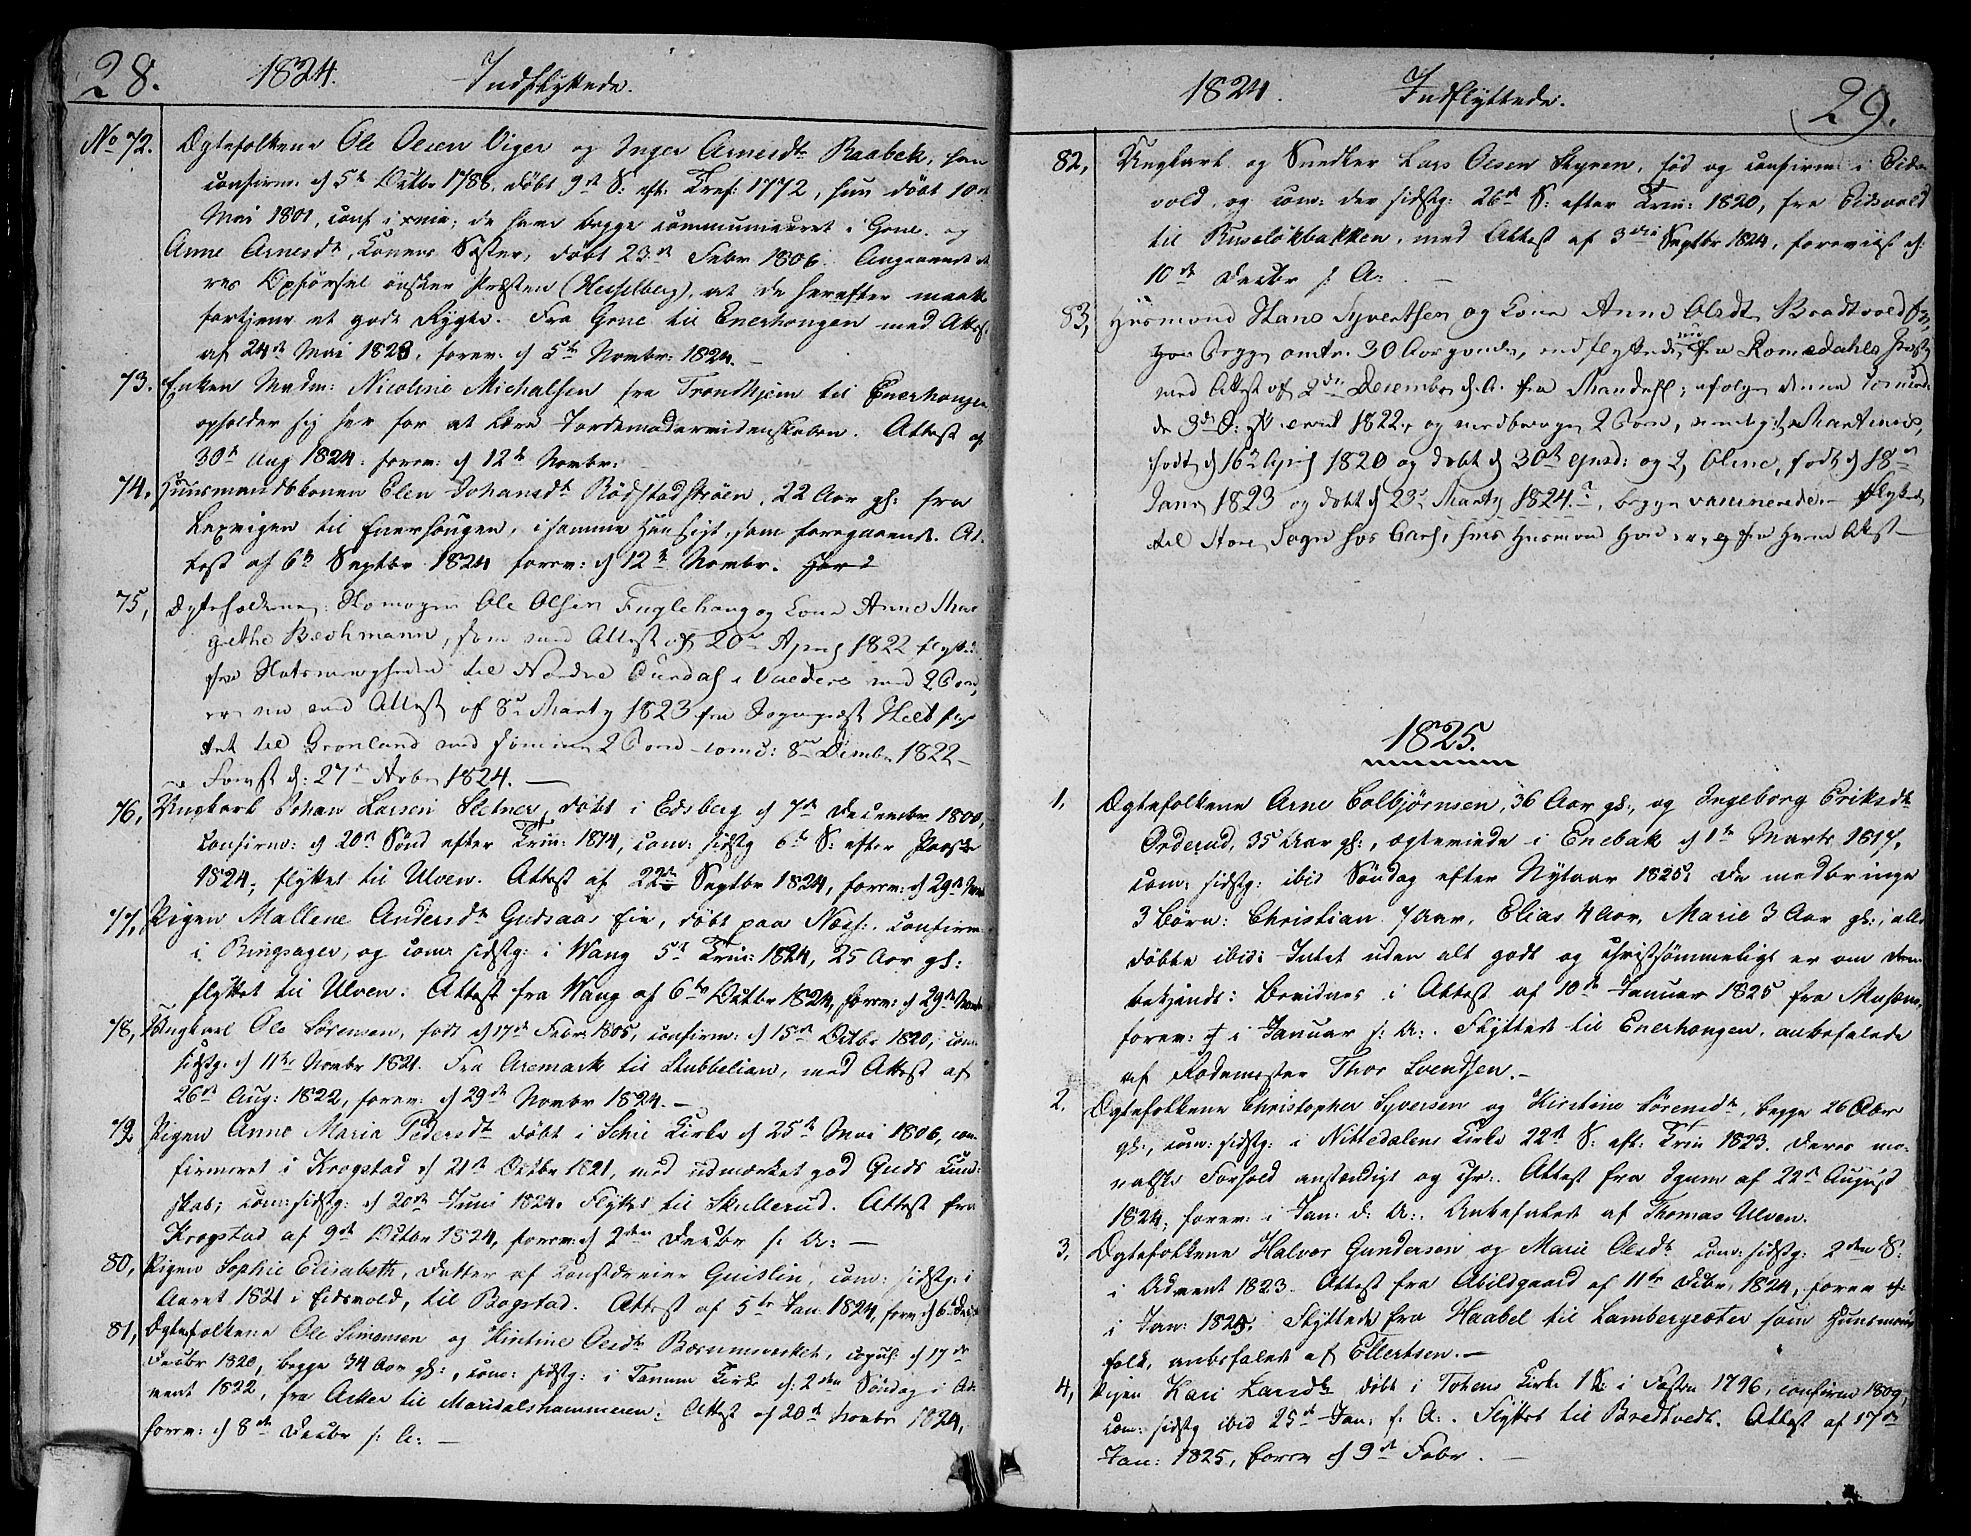 28. 1824. Indflyttede.
No 72. Ægtefolkene Ole Olsen Viger og Inger Arnesdr Raabek, han
confirm. d 5te Octbr 1788, døbt 9de S: eft: Tref: 1772, hun døbt 10de
Mai 1801, conf i ; de have begge communiceret i Grue. og
Anne Arnesdr, Konens Søster, døbt 23de Febr 1806. Angaaende
res Opførsel ønsker Præsten (Hesselberg), at de herefter maatte
fortjene et godt Rygte. Fra Grue til Enerhougen med Attest
af 24de Mai 1823, forev: d 5te Novbr: 1824. —
73. Enken Madm: Nicoline Michalsen fra Trondhjem til Enerhougen
opholder sig her for at lære Jordemodervidenskaben. Attest af
30te Aug 1824. forev: d 12te Novbr:
74. Huusmandskonen Elen Johansdr Rødstadstrøen, 22 Aar gl: fra
Lexvigen til Enerhougen, i samme Hensigt, som foregaaende. At-
test af 6te Septbr 1824 forev: d 12te Novbr.
75, Ægtefolkene Skomager Ole Olsen Fuglehaug og Kone Anne Mar
grethe Bechmann, som med Attest af 20de April 1822 flyttede
fra Slotsmenigheden til Nordre Ourdal i Valders med 2 Børn,
er nu med Attest af 8de Marty 1823 fra Sogneprest Helt flyt
tet til Grønland med sømme 2 Børn com: 8de Decmber 1822 —
Forevist d: 27de Novbr 1824. —
76, Ungkarl Johan Larsen Sletner, døbt i Edsberg d 7de December 1800,
confirm: d 20de Sønd efter Trin: 1814, com: sidstg 6te S: efter Paaske
1824; flyttet til Ulven. Attest af 22de Septbr 1824, forev: d 29de Novbr
77, Pigen Mallene Andersdr Gudsaas Eie, døbt paa Næss:. confirm:
i Ringsager, og com: sidstg: i Wang 5te Trin: 1824, 25 Aar gl:
flyttet til Ulven. Attest fra Wang af 6te Octbr 1824, forev: d 29de Novbr
78, Ungkarl Ole Sørensen, født d 17de Febr 1805, confirm: d 15de Octbr 1820, com:
sidstg: d 11te Novbr 1821. Fra Aremark til Stubbelien, med Attest af
26de Aug: 1822, forev: d 29de Novbr 1824. —
79. Pigen Anne Maria Pedersdr døbt i Schie Kirke d 25de Mai 1806, con-
firmeret i Krogstad d 21de Octbr 1821, med udmærket god Guds Kund-
skab; com: sidstg: d 20de Juni 1824. Flyttet til Skullerud. Attest fra
Krogstad af 9de Octbr 1824, forev: d 2den Decbr s: A: —
80, Pigen Sophie Elisabeth, Datter af Quislin, com: sidstg: i
Aaret 1821 i Eidsvold, til Bogstad. Attest af 5te Jan: 1824, forev d 6te Decbr
81, Ægtefolkene Ole Simensen og Kirstine Olesdr Bærumsverket, copul: d 17de
Decbr 1820, begge 34 Aar gl:, com: sidstg: i Tanum Kirke d: 2den Søndag i Ad-
vent 1822, fra Asker til Maridalshammeren: Attest af 20de Novbr 1824,
forev: d 8de Decbr s: A: —
1824. Indflyttede. 29.
82, Ungkarl og Snedker Lars Olsen Styren, fød og confirm: i Eids-
vold, og com: der sidstg: 26de S: efter Trin: 1820, fra Eidsvold
til Ruseløkbakken, med Attest af 3die Septbr 1824, foreviist d:
10de Decbr s: A: —
83, Husmand Hans Syvertsen og Kone Anne Olsdr Braatvold
begge omtr: 30 Aar gamle, indflyttede fra Romsdahls
med Attest af 2den December d. A. fra Mandahl; ifølge denne
de 3de S: 1822, og medbringe 2 Børn, nemlig: 1, Martinus,
født d 16de April 1820 og døbt d 30te ejusd: og 2, Oline, født d 18de
Janr 1823 og døbt d 23de Marty 1824., begge vaccinerede. — flyttet
til Store Sogn hos Carl, hvis Husmand
1825.
1, Ægtefolkene Arne Colbjørnsen, 36 Aar gl:, og Ingeborg Eriksdr
Orderud, 35 Aar gl:, ægteviede i Enebak d 1te Marts 1817,
com: sidstg: ibid Søndag efter Nytaar 1825. De medbringe
3 Børn: Christian 7 Aar, Elias 4 Aar, Marie 3 Aar gl:, alle
døbte ibid: Intet uden alt godt og christsømmeligt er om dem
bekjendt: Bevidnes i Attest af 10de Januar 1825 fra
forev: i Januar s: A:. Flyttede til Enerhougen, anbefalede
af Rodemester Thor Svendsen. —
2. Ægtefolkene Christopher Syversen og Kirstine Sørensdr, begge 26 Aar
gl:, com: sidstg: i Nittedalens Kirke 22de S: eft: Trin 1823. Deres mo-
ralske Forhold anstændigt og chr:. Attest fra af 22de August
1824, forev: i Jan: d: A:. Anbefalede af Thomas Ulven.
3, Ægtefolkene Halvor Gundersen og Marie Olesdr com: sidstg: 2den S:
i Advent 1823. Attest fra Abildgaard af 11te Decbr 1824, forev:
i Jan: 1825. Flyttede fra Haabel til Lambergseter som Huusmands
folk, anbefalet af Ellertsen. —
4, Pigen Kari Larsdr døbt i Totens Kirke 1 S: i Fasten 1796, confirm 1809,
com: sidstg ibid 25de Jan: s. A:. Flyttet til Bredtvedt. Attest af 17de
Jan: 1825, forev d 9de Febr. —